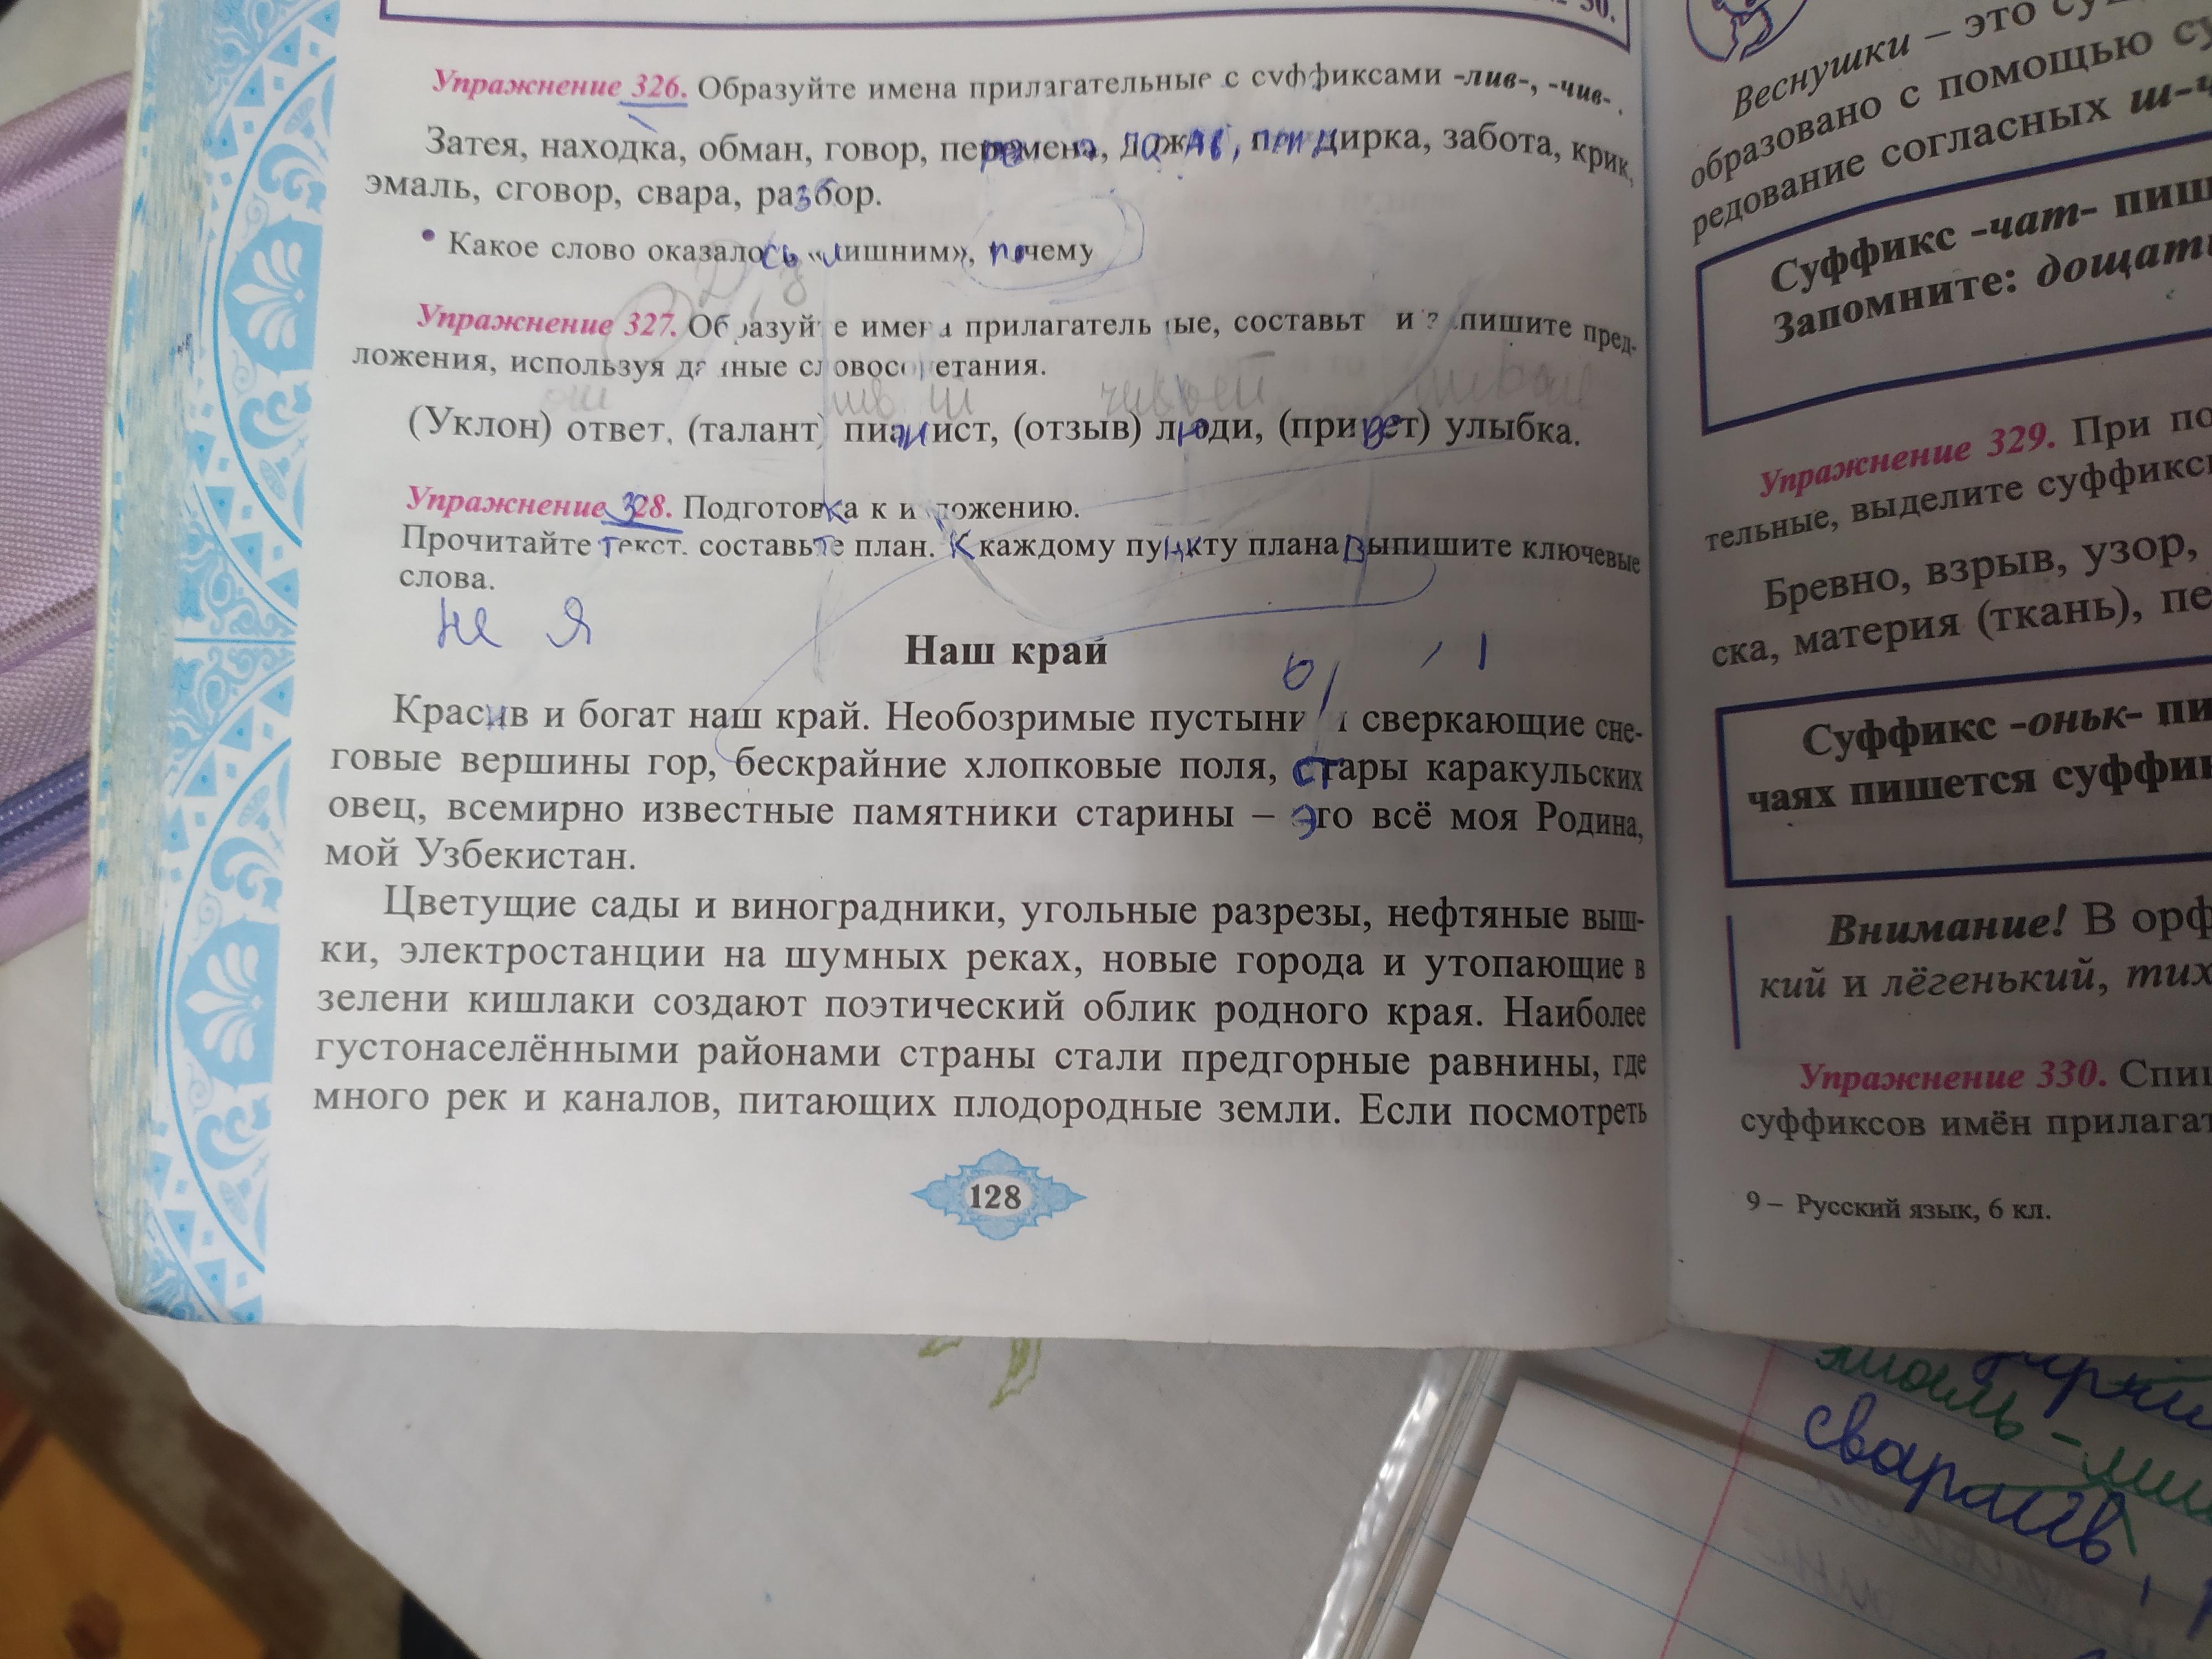 50.
Упражнение 326. Образуйте имена прилагательные с суффиксами -лив-, -чив-.
Затея, находка, обман, говор, перемена, дождь, придирка, забота, крик,
эмаль, сговор, свара, разбор.
• Какое слово оказалось «лишним», почему
Упражнение 327. Образуйте имена прилагательные, составьт и запишите пред-
ложения, используя данные словосочетания.
(Уклон) ответ, (талант) пианист, (отзыв) люди, (привет) улыбка.
Упражнение 328. Подготовка к изложению.
Прочитайте текст. составьте план. К каждому пункту плана выпишите ключевые
слова.
не я
Наш край
Красив и богат наш край. Необозримые пустыни и сверкающие сне-
говые вершины гор, бескрайние хлопковые поля, стары каракульских
овец, всемирно известные памятники старины – это всё моя Родина,
мой Узбекистан.
Цветущие сады и виноградники, угольные разрезы, нефтяные выш-
ки, электростанции на шумных реках, новые города и утопающие в
зелени кишлаки создают поэтический облик родного края. Наиболее
густонаселёнными районами страны стали предгорные равнины, где
много рек и каналов, питающих плодородные земли. Если посмотреть
128
Веснушки – это
образовано с помощью
редование согласных ш-ч
Суффикс -чат- пиш
Запомните: дощат
Упражнение 329. При по
тельные, выделите суффикс
Бревно, взрыв, узор,
ска, материя (ткань), пе
Суффикс -оньк- пи
чаях пишется суффик
Внимание! В орф
кий и лёгенький, тих
Упражнение 330. Спи
суффиксов имён прилагат
9 – Русский язык, 6 кл.
сварлив,